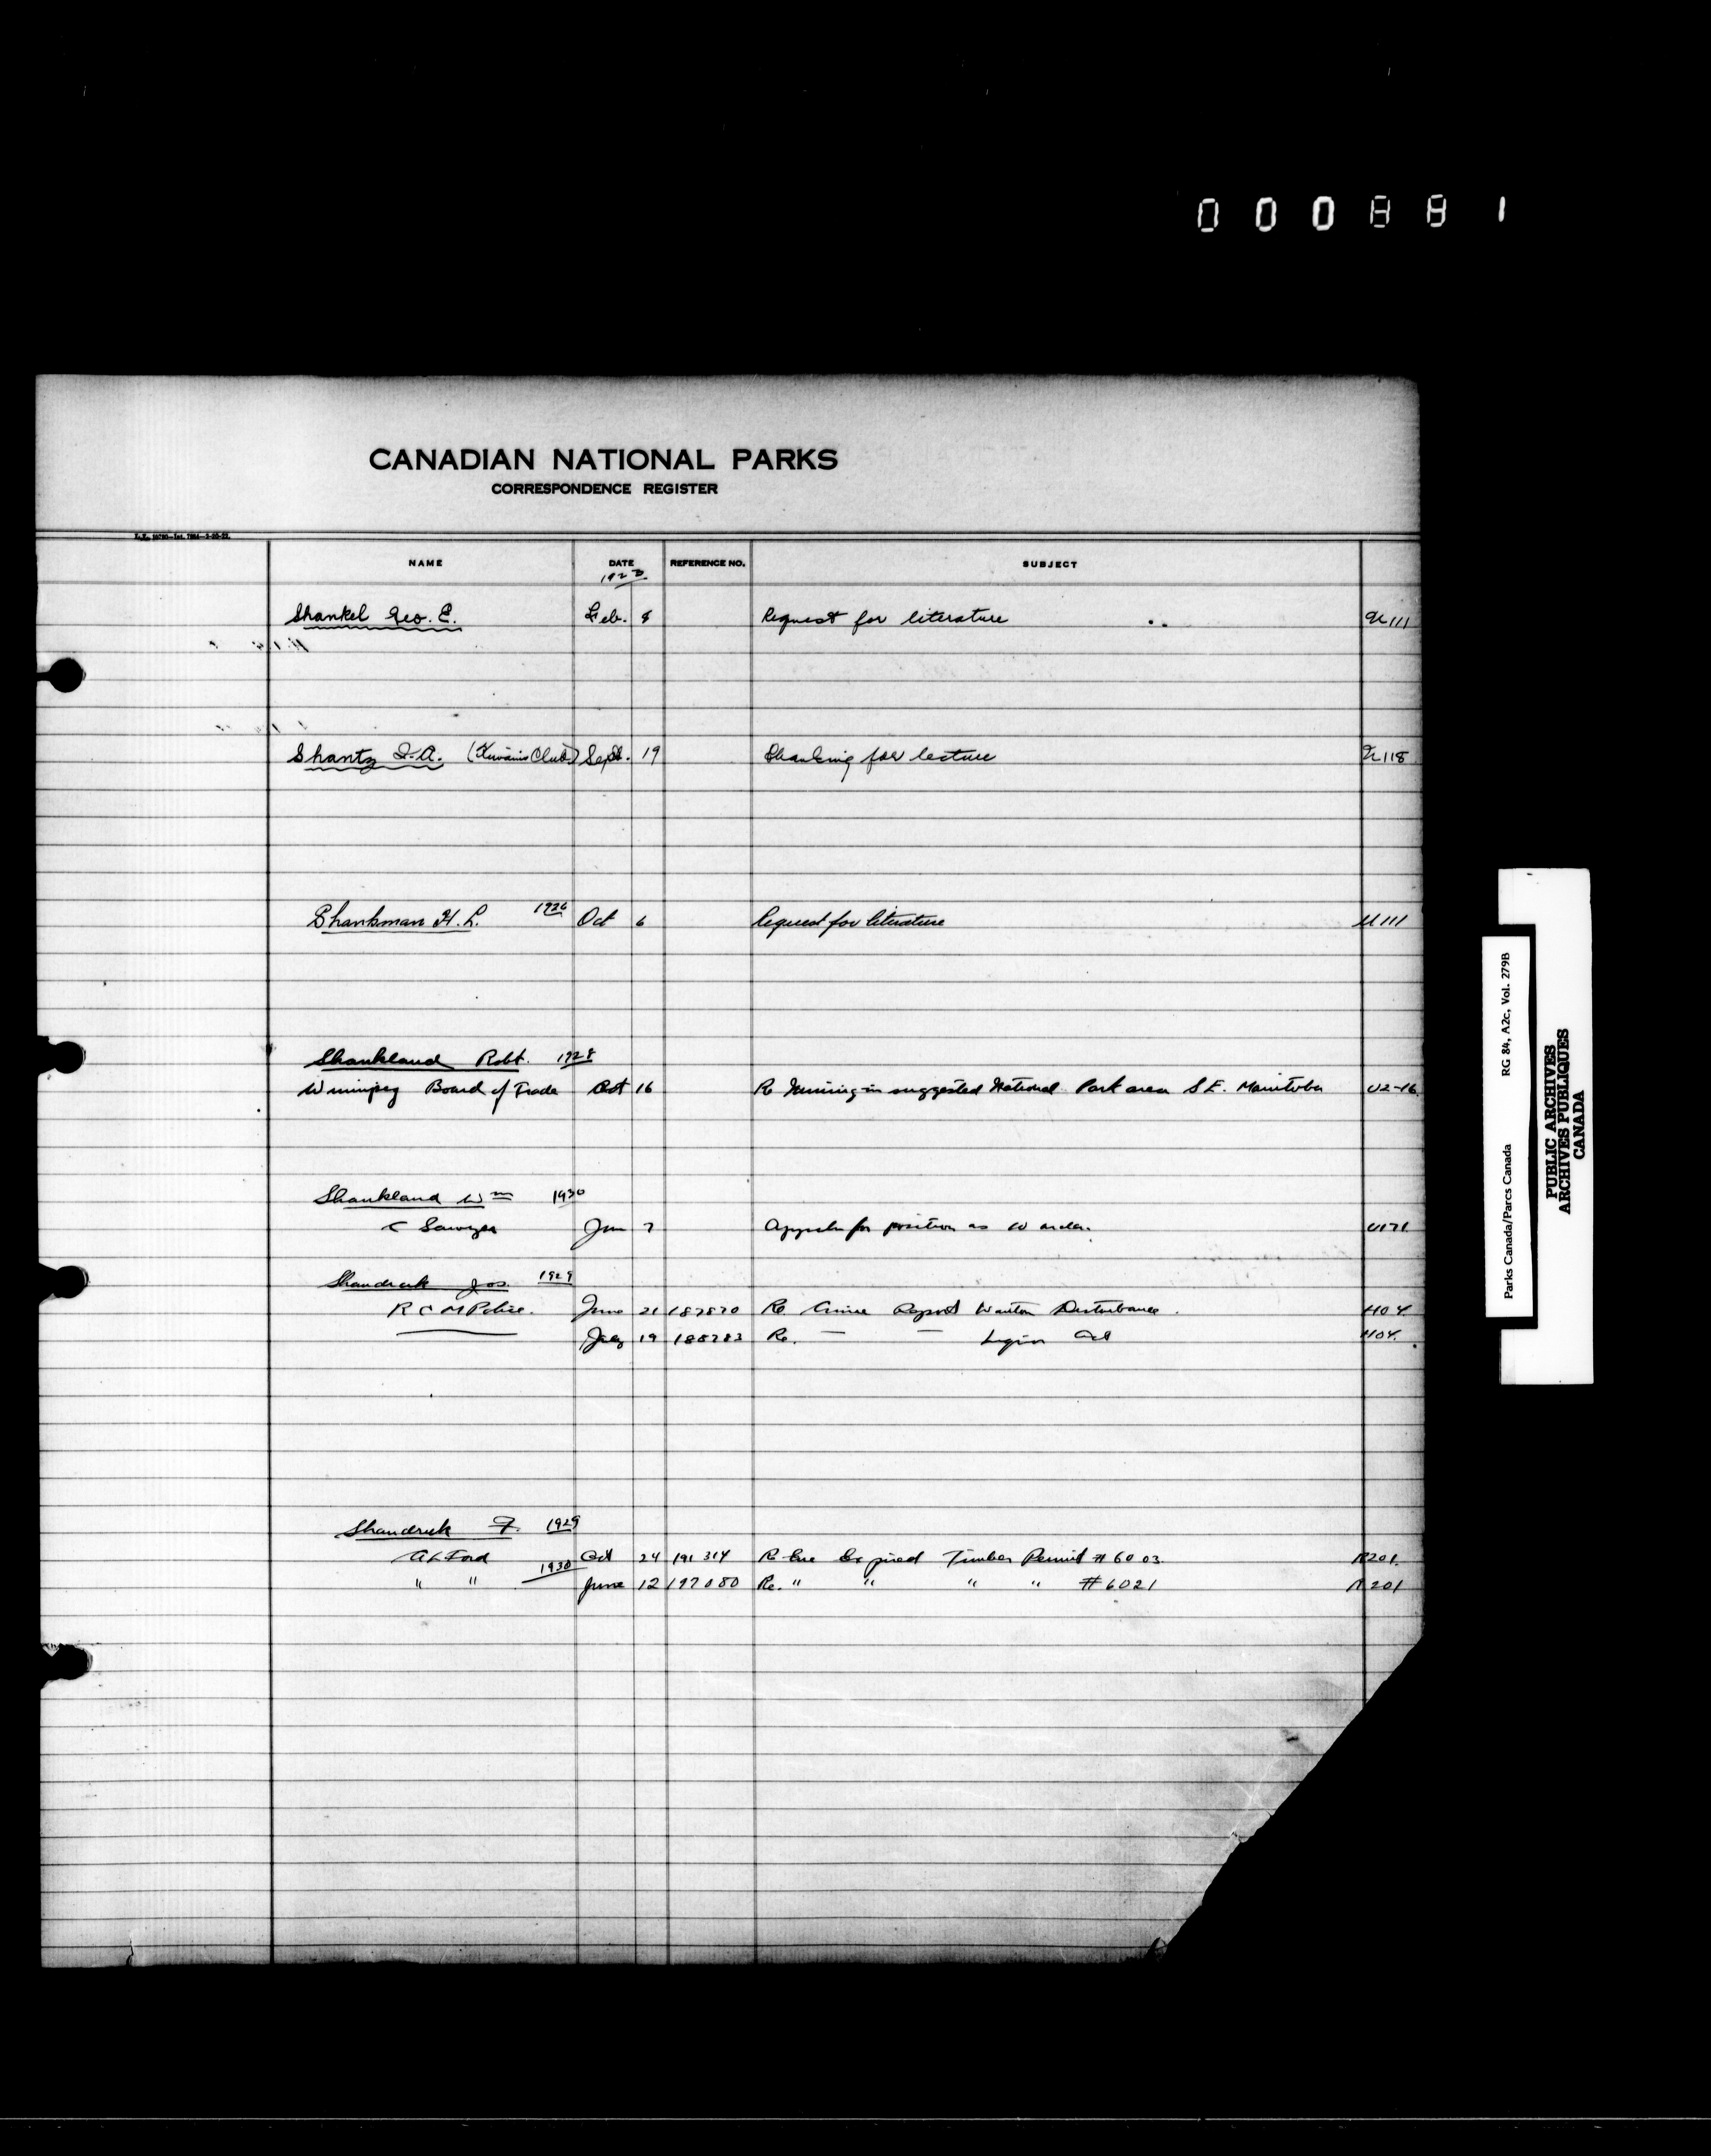 000881
CANADIAN NATIONAL PARKS
CORRESPONDENCE REGISTER
NAME DATE REFERENCE NO. SUBJECT
1923
Shankel Geo. E. Feb. 8 Request for literature U111
Shantz I.A. (Kiwanis Club) Sept. 19 Thanking for lecture U118
Shankman H. L. 1926 Oct 6 Request for literature U111
Shankland Robt. 1928
Winnipeg Board of Trade Oct 16 Re Mining in suggested National Park area S E. Manitoba U2-16
Shankland Wm 1930
C Sawyer Jan 7 for position as Warden. U171
Shandruk Jos. 1929
R C M Police. June 21 187870 Re Crime Report Wanton Disturbance. 
19 188783 Re. — — Liquor Act
Shandruk F. 1929
A L Ford Oct 24 191314 Re Expired Timber Permit # 6003. R201.
" " 1930 June 12 197080 Re. " " " " # 6021 R201
Parks Canada/Parcs Canada RG 84, A2c, Vol. 279B
PUBLIC ARCHIVES
ARCHIVES PUBLIQUES
CANADA